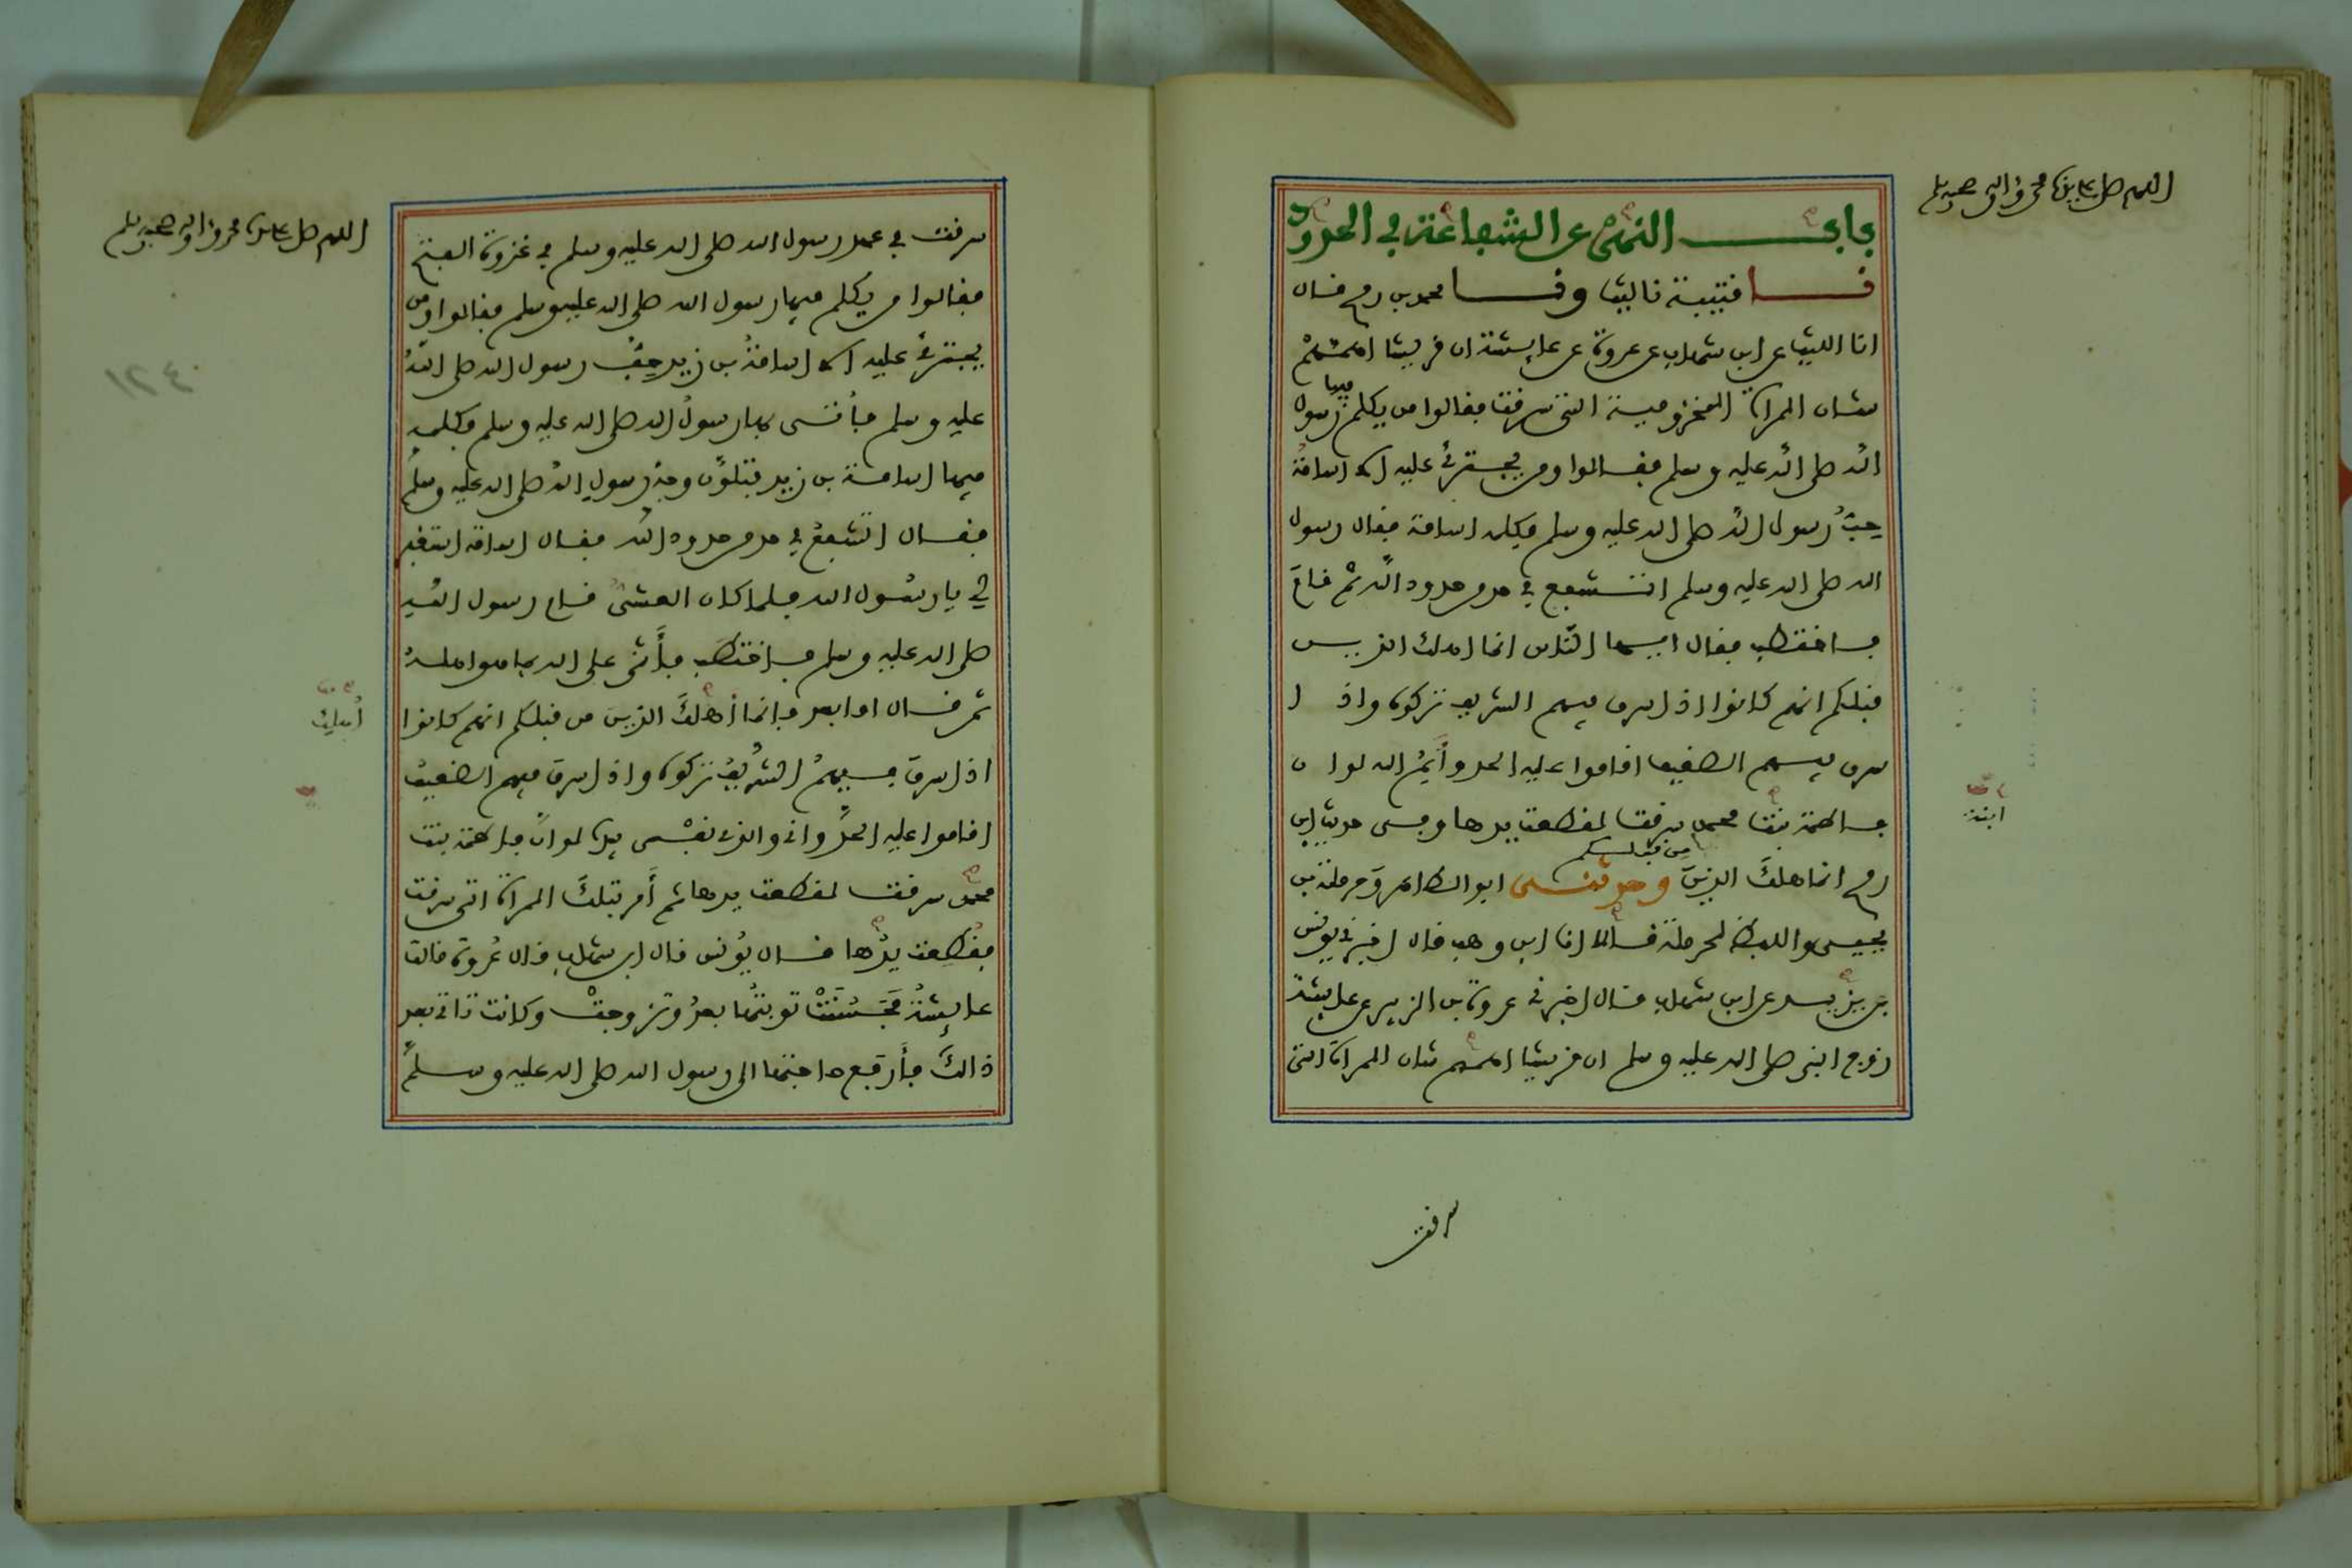 اللهم صل على سيدنا محمد وآله وصحبه وسلم
باب النهي عن الشفاعة في الحدود
نا قتيبة نا ليث ونا محمد بن رمح قال
انا الليث عن ابن شهاب عن عروة عن عايشة ان قريشا اهمهم
شان المراة المخزومية التي سرقت فقالوا من يكلم فيها رسول
الله صلى الله عليه وسلم فقالوا ومن يجترئ عليه الا اسامة
حِبُّ رسول الله صلى الله عليه وسلم فكلمه اسامة فقال رسول
الله صلى الله عليه وسلم اتشفع في حد من حدود الله ثم قام
فاختطب فقال ايها الناس انما اهلك الذين
قبلكم انهم كانوا اذا سرق فيهم الشريف تركوه واذا
سرق فيهم الضعيف اقاموا عليه الحد وأيم الله لو ان
فاطمة بنت محمد سرقت لقطعت يدها وفي حديث ابن
رمح انما هلك الذين من قبلكم وحدثني ابو الطاهر وحرملة بن
يحيى واللفظ لحرملة قالا انا ابن وهب قال اخبرني يونس
بن يزيد عن ابن شهاب قال اخبرني عروة بن الزبير عن عايشة
زوج النبي صلى الله عليه وسلم ان قريشا اهمهم شان المراة التي
ابنة
سرقت
اللهم صل على سيدنا محمد وآله وصحبه وسلم
سرقت في عهد رسول الله صلى الله عليه وسلم في غزوة الفتح
فقالوا من يكلم فيها رسول الله صلى الله عليه وسلم فقالوا ومن
يجترئ عليه الا اسامةُ بن زيد حِبُّ رسول الله صلى الله
عليه وسلم فأتي بها رسولُ الله صلى الله عليه وسلم فكلمه
فيها اسامة بن زيد فتلوّن وجهُ رسولِ الله صلى الله عليه وسلم
فقال اتشفعُ في حد من حدود الله فقال اسامة استغفر
لي يا رسول الله فلما كان العشي قام رسول الله
صلى الله عليه وسلم فاختطب فأثنى على الله بما هو اهله
ثم قال اما بعد فانما أهلكَ الذين من قبلكم انهم كانوا
اذا سرقَ فيهمُ الشريفُ تركوه واذا سرقَ فيهم الضعيفُ
اقاموا عليه الحدَّ واني والذي نفْسي بيده لو انّ فاطمة بنت
محمد سرقت لقطعت يدها ثم أَمر بتلكَ المراة التي سرقت
فقُطِعت يدُها قال يُونس قال ابن شهاب قال عُروة قالت
عايشةُ فحَسُنَتْ توبتُها بعدُ وتزوجتْ وكانت تاتي بعد
ذالكَ فأرفع حاجتها الى رسول الله صلى الله عليه وسلم
٤٢١